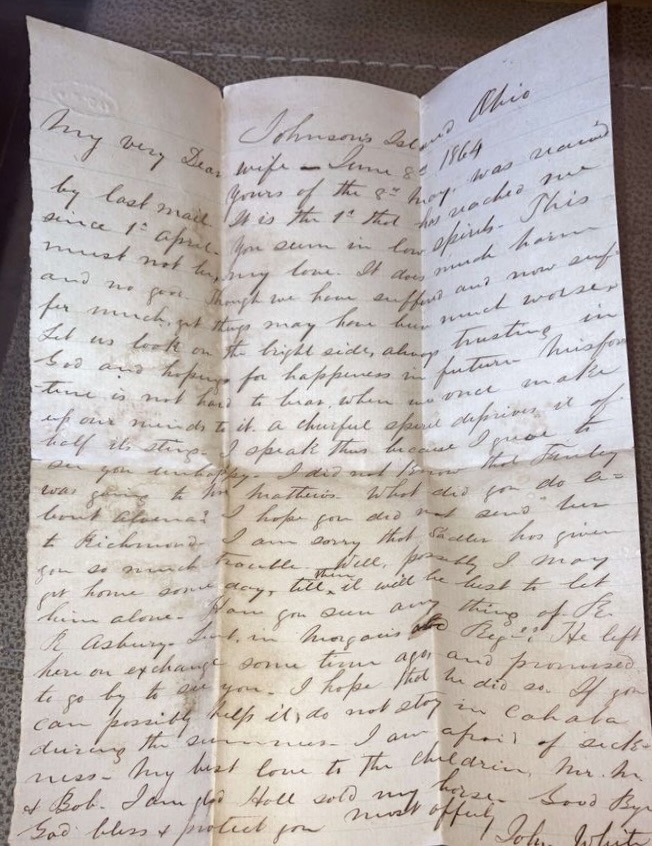 Johnson's Island Ohio
My very Dear wife — June 8th 1864
Yours of the 8th May. was received
by last mail It is the 1st that has reached me
since 1st April. You seem in low spirits. This
must not be, my love. It does much harm
and no good. Though we have suffered and now suf-
fer much, yet things may have been much worse.
Let us look on the bright side, always trusting in
God and hoping for happiness in future Misfor
tune is not hard to bear, when we once make
up our minds to it. A cheerful spirit deprives it of
half its sting. I speak thus because I grieve to
see you unhappy. I did not know that
was going to Mrs Mathews. What did you do a=
bout Alvena? I hope you did not send her
to Richmond. I am sorry that Sadler has given
you so much trouble. Well, possibly I may
get home some day, till then it will be best to let
him alone. Have you seen any thing of R.
R Asbury Lieut. in Morgan's Regt? He left
here on exchange some time ago, and promised
to go by to see you. I hope that he did so. If you
can possibly help it, do not stay in Cahaba
during the summer. I am afraid of sick-
ness. My best love to the children, Mr. M.
& Bob. I am glad Holl sold my horse. Good Bye
God bless & protect you most affectly
John White